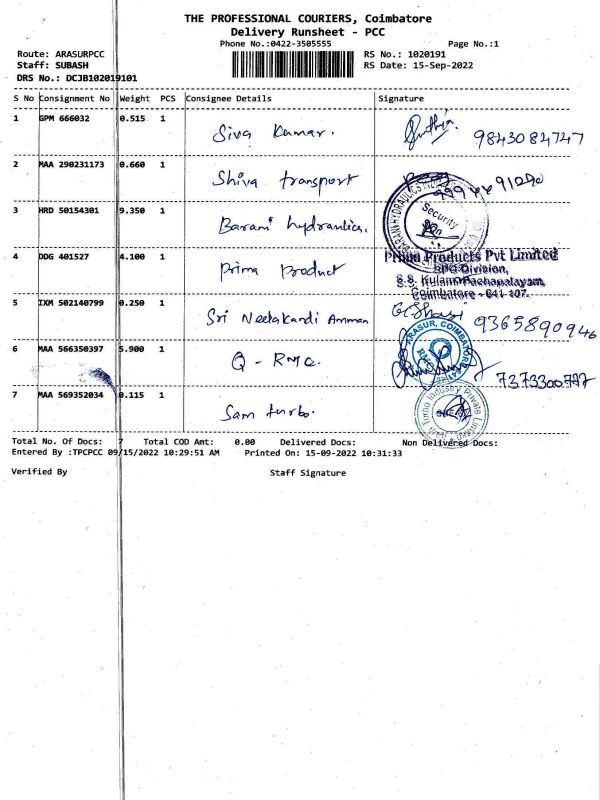 THE PROFESSIONAL COURIERS, Coimbatore
Delivery Runsheet - PCC
Phone No.:0422-3505555 Page No.:1
Route: ARASURPCC RS No.: 1020191
Staff: SUBASH RS Date: 15-Sep-2022
DRS No.: DCJB102019101
S No Consignment No Weight PCS Consignee Details Signature
1 GPM 666032 0.515 1 Siva Kumar. 9843084747
2 MAA 290231173 0.660 1 Shiva transport
3 HRD 50154301 9.350 1 Barani hydraulics. Security
4 DDG 401527 4.100 1 Prima Product Prima Products Pvt Limited
RPG Division,
S.S. Kulam Pachapalayam,
Coimbatore - 641 107.
5 IXM 502140799 0.250 1 Sri Neelakandi Amman 9365890946
6 MAA 566350397 5.900 1 Q - RMC. ARASUR, COIMBATORE 7373300797
7 MAA 569352034 0.115 1 Sam turbo. Turbo Industry Private Limited
Total No. Of Docs: 7 Total COD Amt: 0.00 Delivered Docs: Non Delivered Docs:
Entered By :TPCPCC 09/15/2022 10:29:51 AM Printed On: 15-09-2022 10:31:33
Verified By Staff Signature